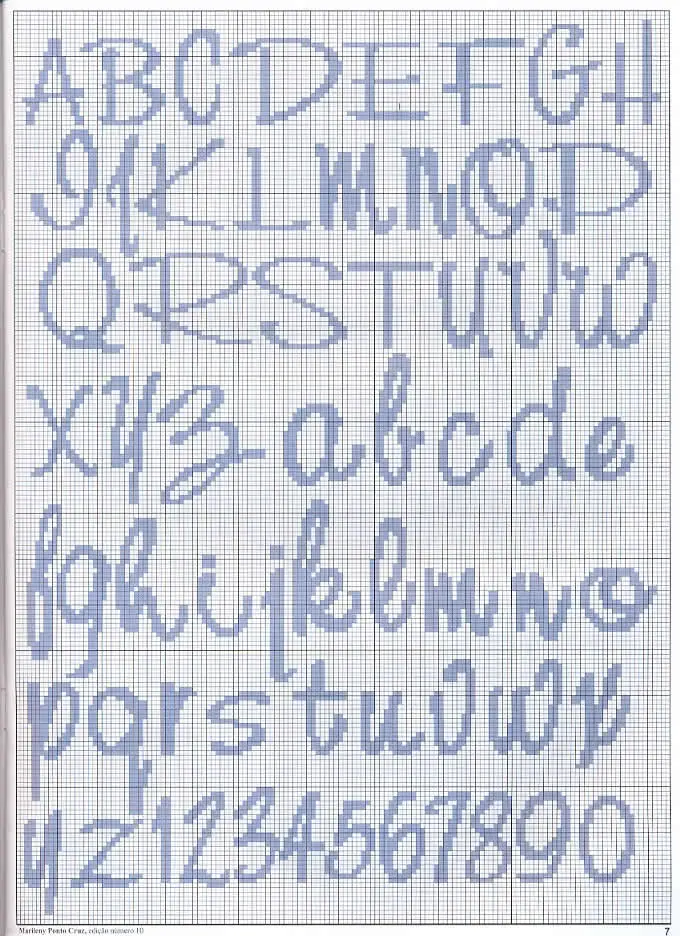 ABCDEFGH
IJKLMNOP
QRSTUVW
XYZ abcde
fghijklmno
pqrstuvwx
yz1234567890
Marileny Ponto Cruz, edição número 10
7